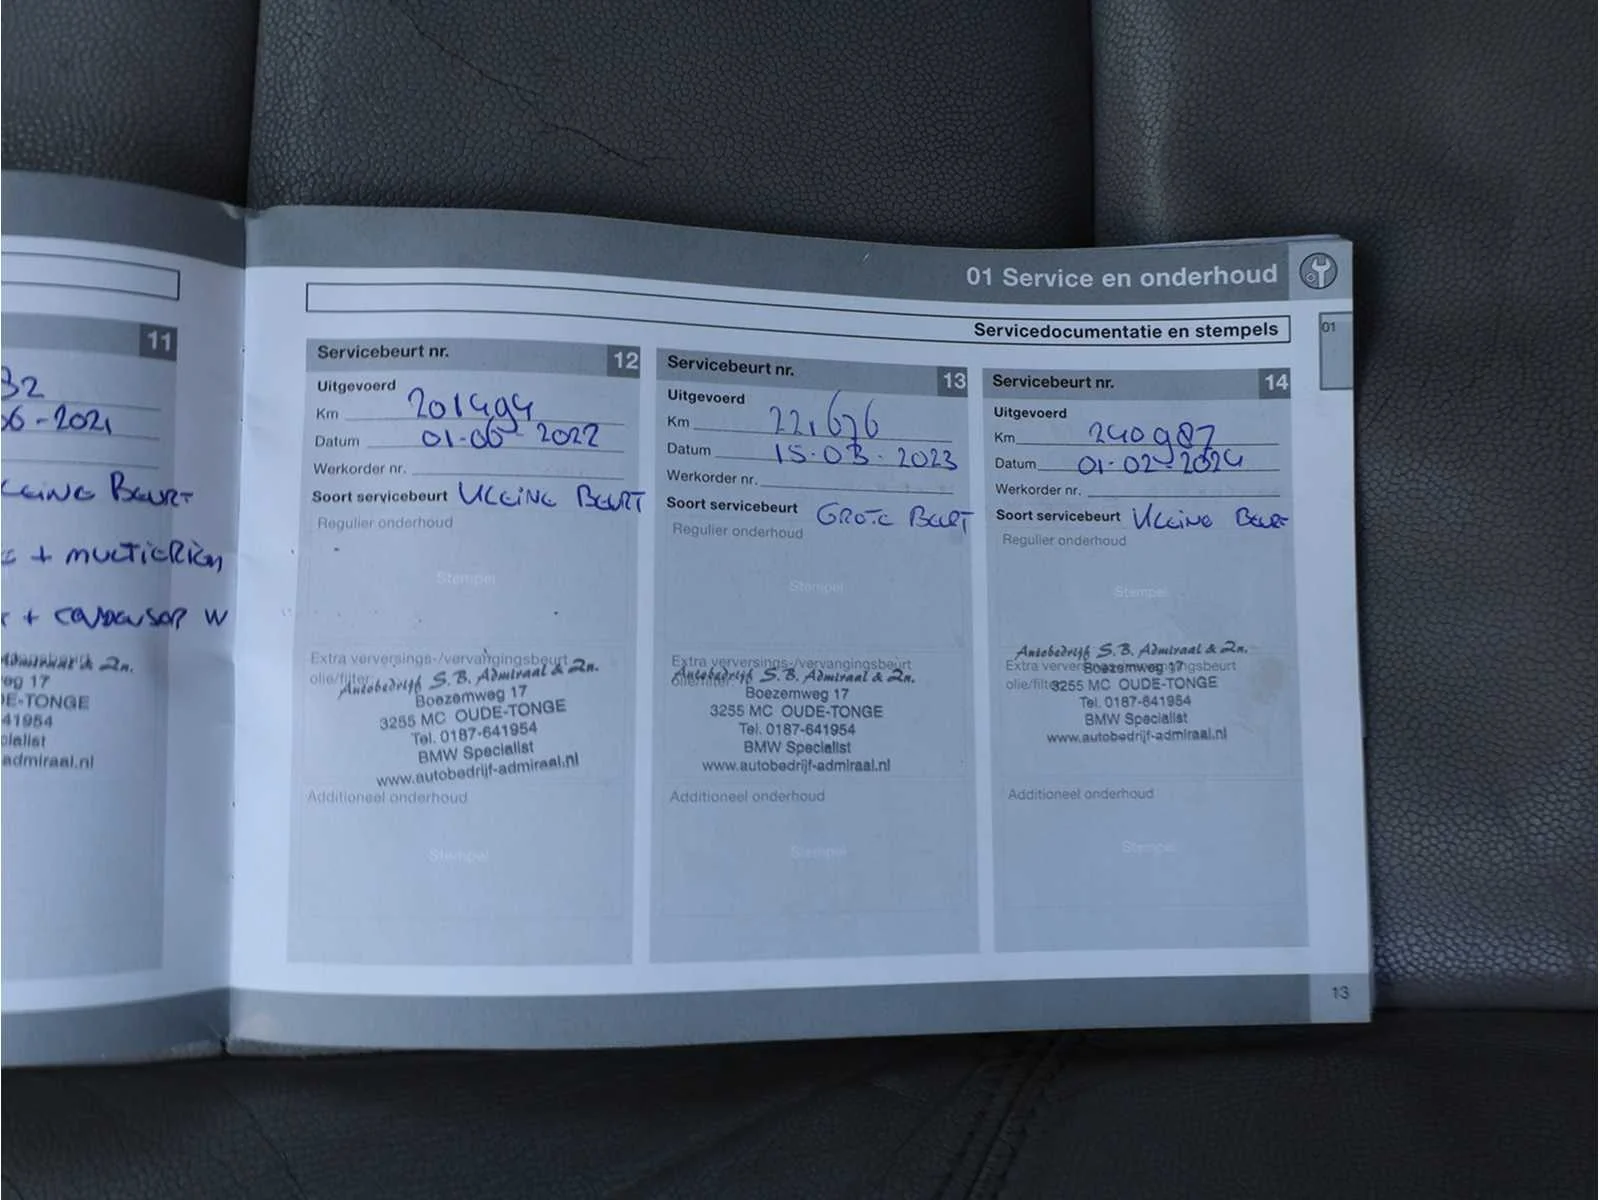 11
32
06-2021
KLEINE BEURT
+ MULTIRIEM
+ CONDENSOR W
Admiraal & Zn.
eg 17
DE-TONGE
41954
cialist
admiraal.nl
01 Service en onderhoud
01
Servicedocumentatie en stempels
Servicebeurt nr. 12
Uitgevoerd
Km 201494
Datum 01-06-2022
Werkorder nr.
Soort servicebeurt KLEINE BEURT
Regulier onderhoud
Stempel
Extra verversings-/vervangingsbeurt
olie/filter:
Autobedrijf S.B. Admiraal & Zn.
Boezemweg 17
3255 MC OUDE-TONGE
Tel. 0187-641954
BMW Specialist
www.autobedrijf-admiraal.nl
Additioneel onderhoud
Stempel
Servicebeurt nr. 13
Uitgevoerd
Km
Datum 15-03-2023
Werkorder nr.
Soort servicebeurt GROTE BEURT
Regulier onderhoud
Stempel
Extra verversings-/vervangingsbeurt
olie/filter:
Autobedrijf S.B. Admiraal & Zn.
Boezemweg 17
3255 MC OUDE-TONGE
Tel. 0187-641954
BMW Specialist
www.autobedrijf-admiraal.nl
Additioneel onderhoud
Stempel
Servicebeurt nr. 14
Uitgevoerd
Km 240987
Datum 01-02-2024
Werkorder nr.
Soort servicebeurt KLEINE BEURT
Regulier onderhoud
Stempel
Autobedrijf S.B. Admiraal & Zn.
Extra verversings-/vervangingsbeurt
Boezemweg 17
olie/filter:
3255 MC OUDE-TONGE
Tel. 0187-641954
BMW Specialist
www.autobedrijf-admiraal.nl
Additioneel onderhoud
Stempel
13